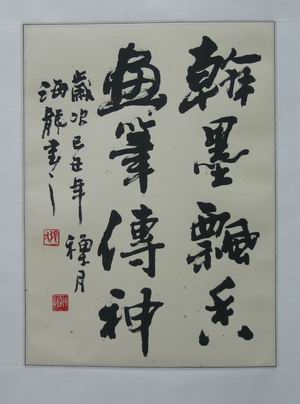 翰墨飄香
畫筆傳神
歲次己丑年月
海龍書